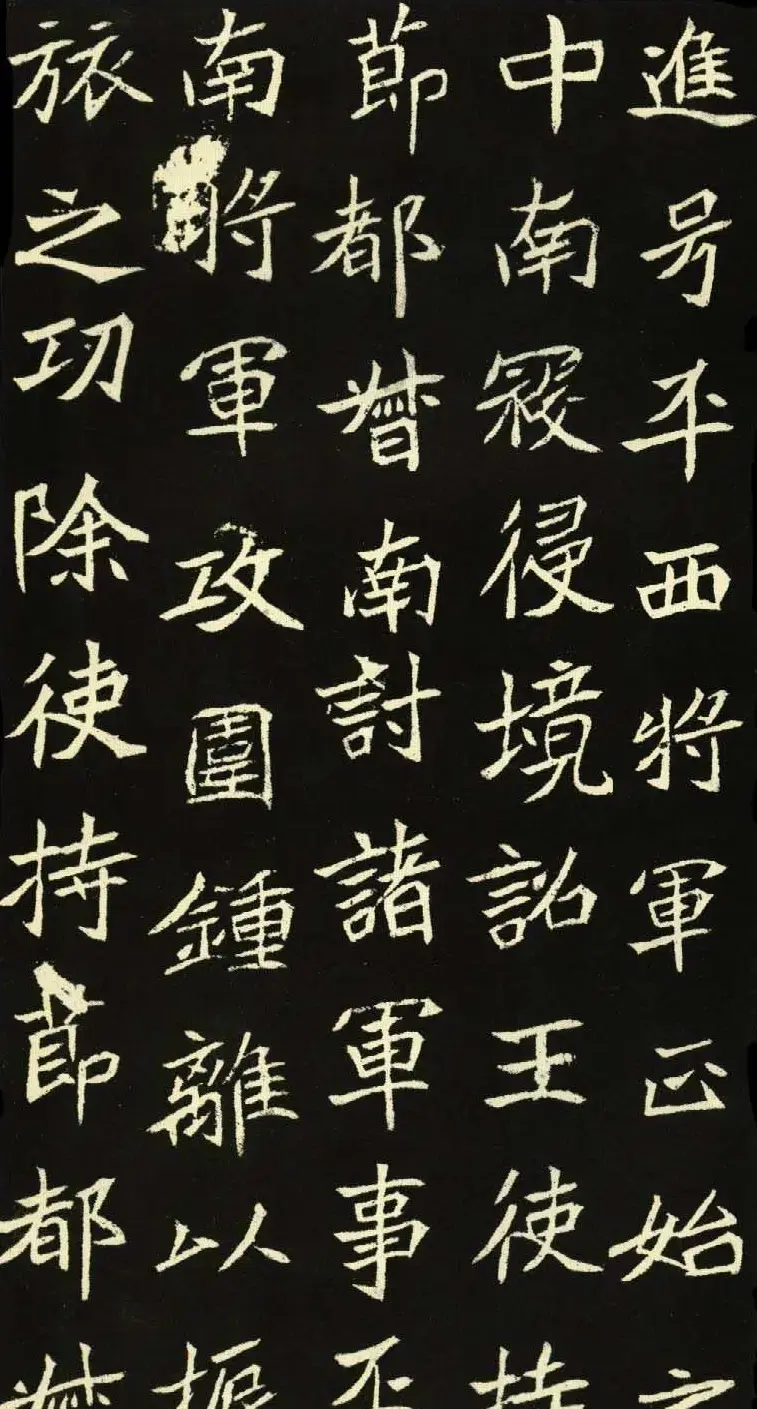 進号平西將軍正始之
中南寇侵境詔王使持
節都督南討諸軍事平
南將軍攻圍鍾離以振
旅之功除使持節都督